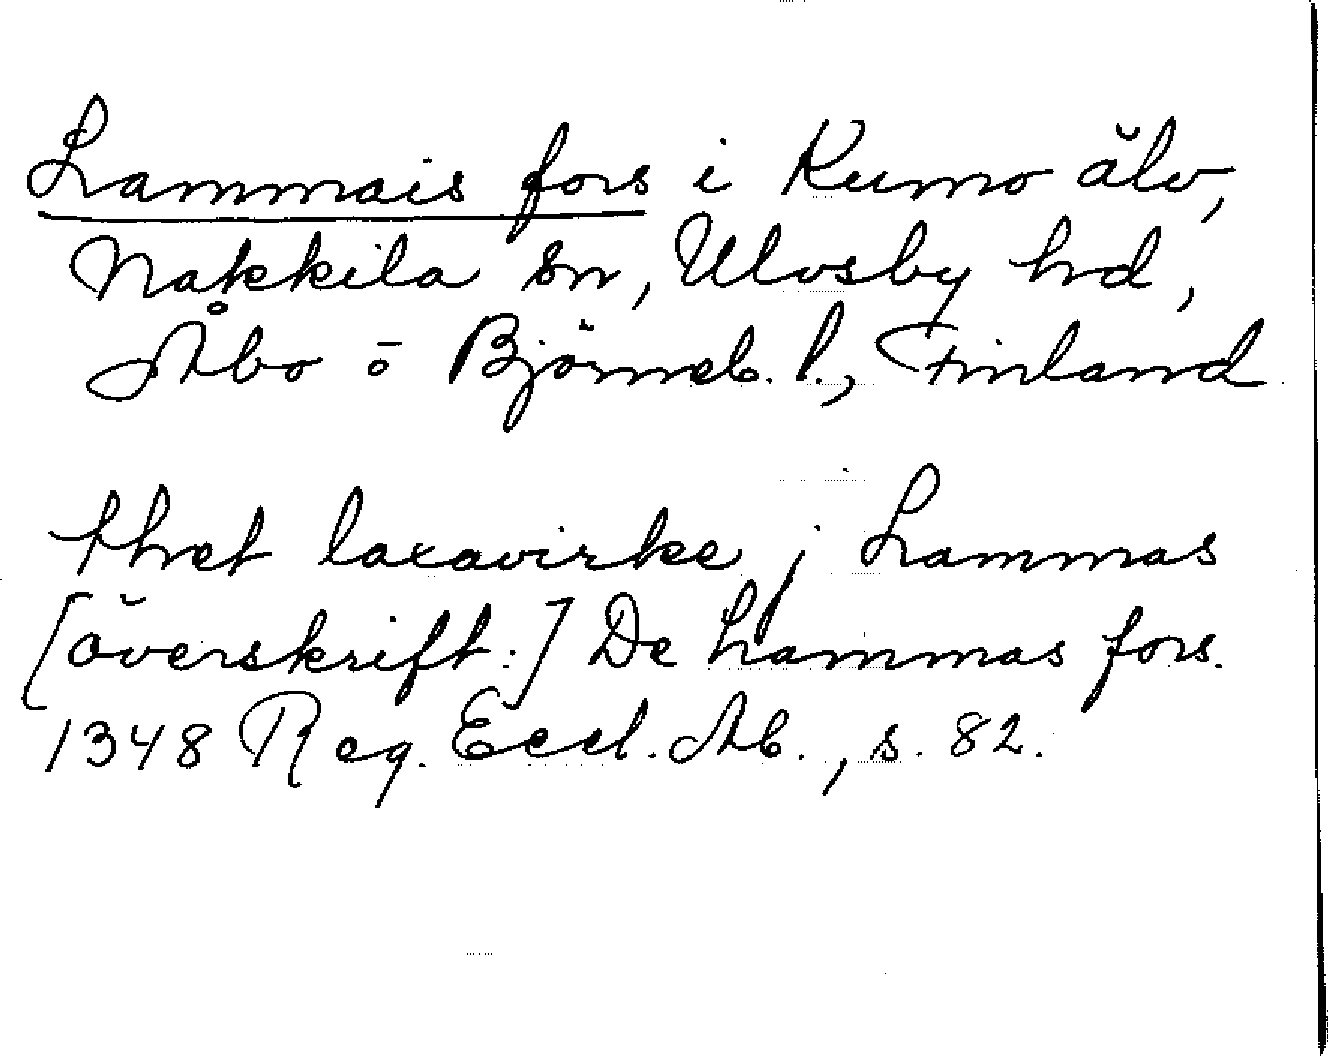 Lammais fors i Kumo älv,
Nakkila sn, Ulvsby hd,
Åbo o Björneb. l., Finland
thet laxavirke j Lammas
[överskrift:] De Lammas fors.
1348 Reg. Eccl. Ab., s. 82.